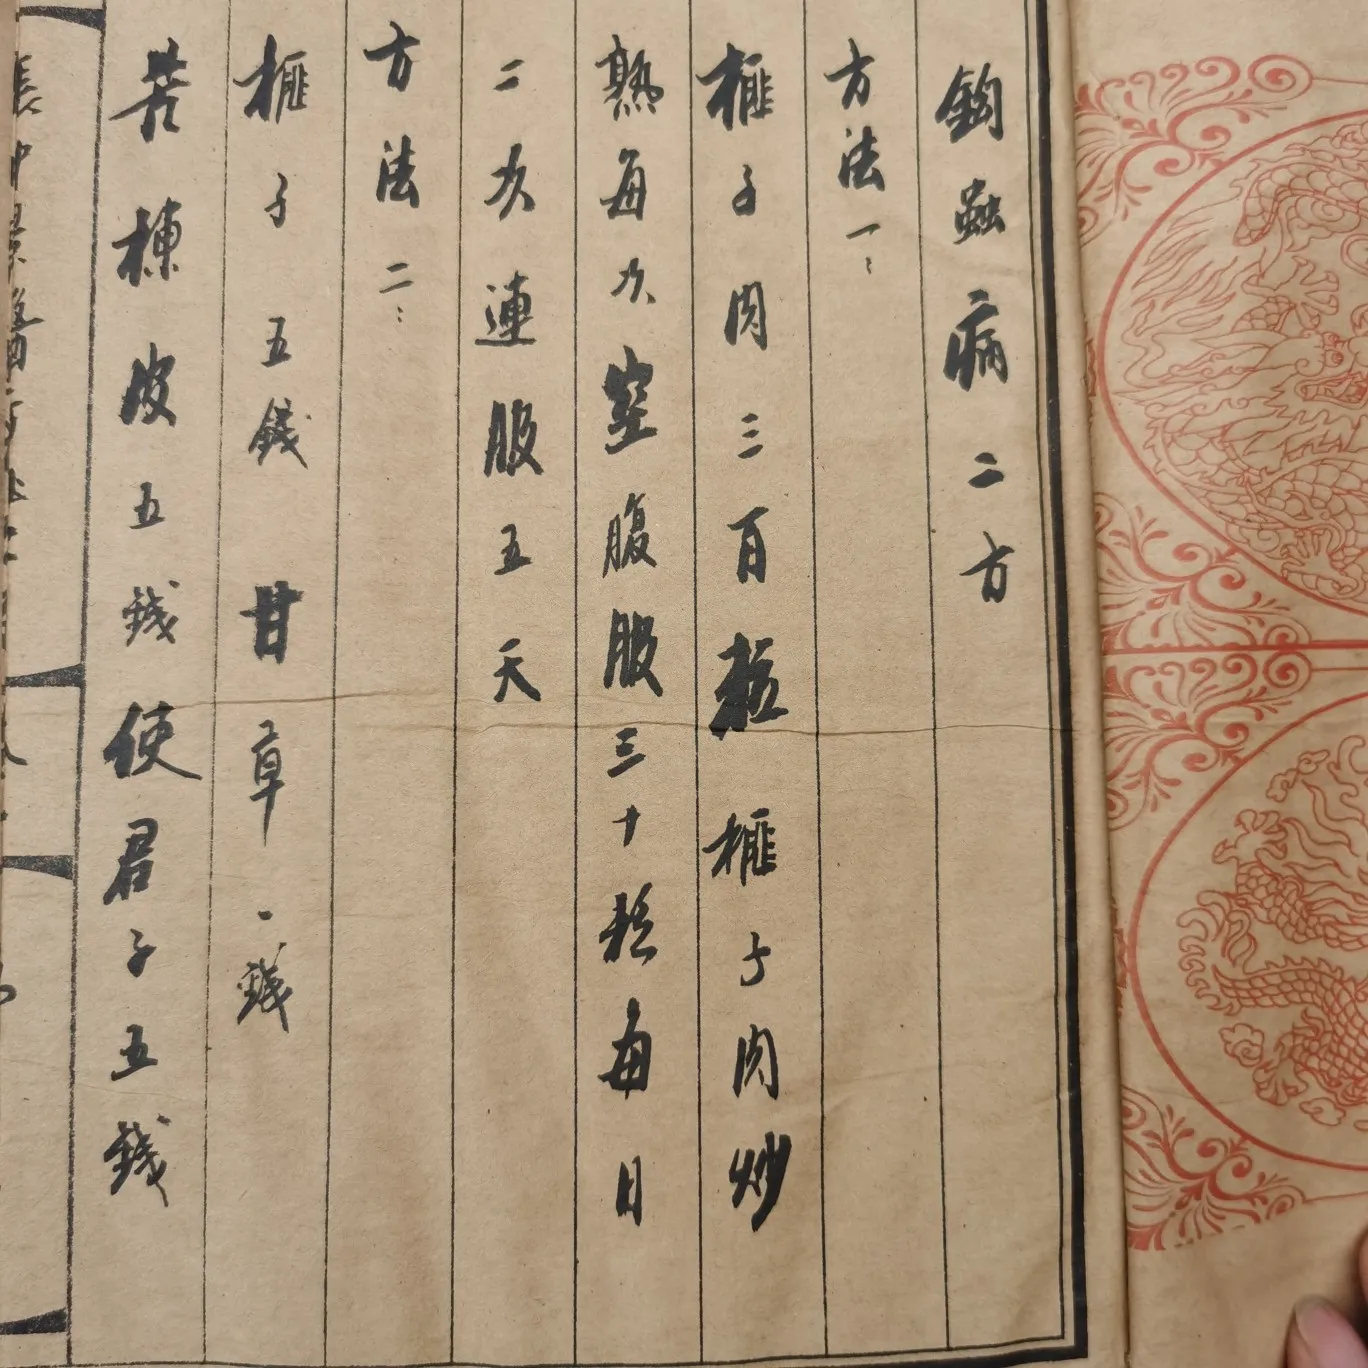 鈎蟲病二方
方法一：
榧子肉三百粒榧子肉炒
熟每次空腹服三十粒每日
二次連服五天
方法二：
榧子五錢甘草一錢
苦楝皮五錢使君子五錢
張仲景醫